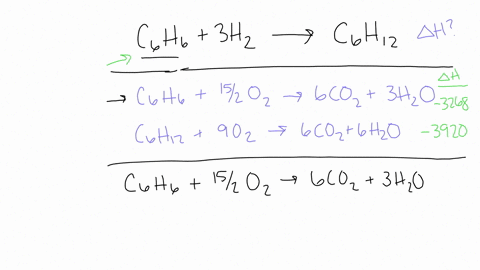 C₆H₆ + 3H₂ → C₆H₁₂ ΔH?
ΔH
→ C₆H₆ + 15/2 O₂ → 6CO₂ + 3H₂O -3268
C₆H₁₂ + 9O₂ → 6CO₂ + 6H₂O -3920
C₆H₆ + 15/2 O₂ → 6CO₂ + 3H₂O